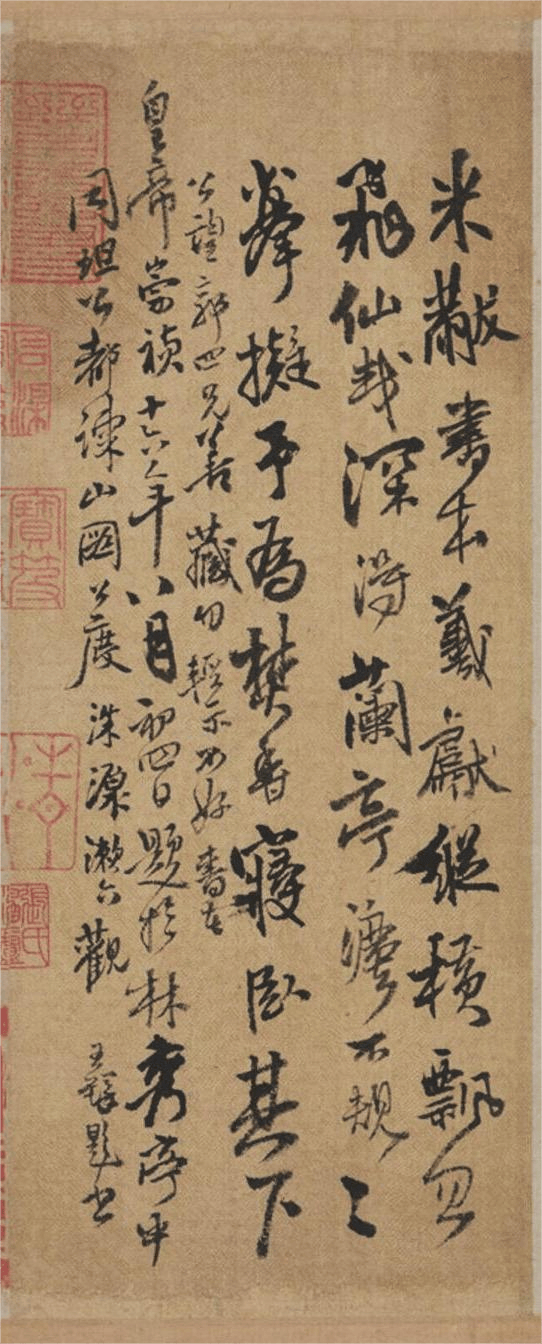 米黻書本羲獻縱橫飄忽
飛仙哉深得蘭亭法不規〻
摹擬予為焚香寢臥其下
公望郭四兄善藏勿輕示不好書者
皇帝崇禎十六年八月初四日題於林秀亭中
同坦公都諫山圖公度洙源瀨六觀
王鐸題